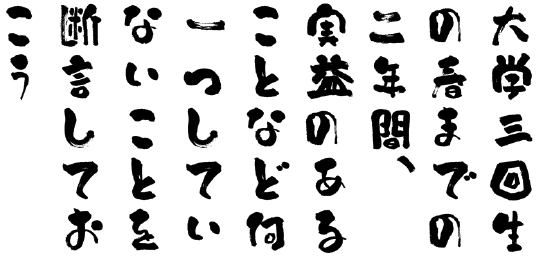 大学三回生
の春までの
二年間、
実益のある
ことなど何
一つしてい
ないことを
断言してお
こう